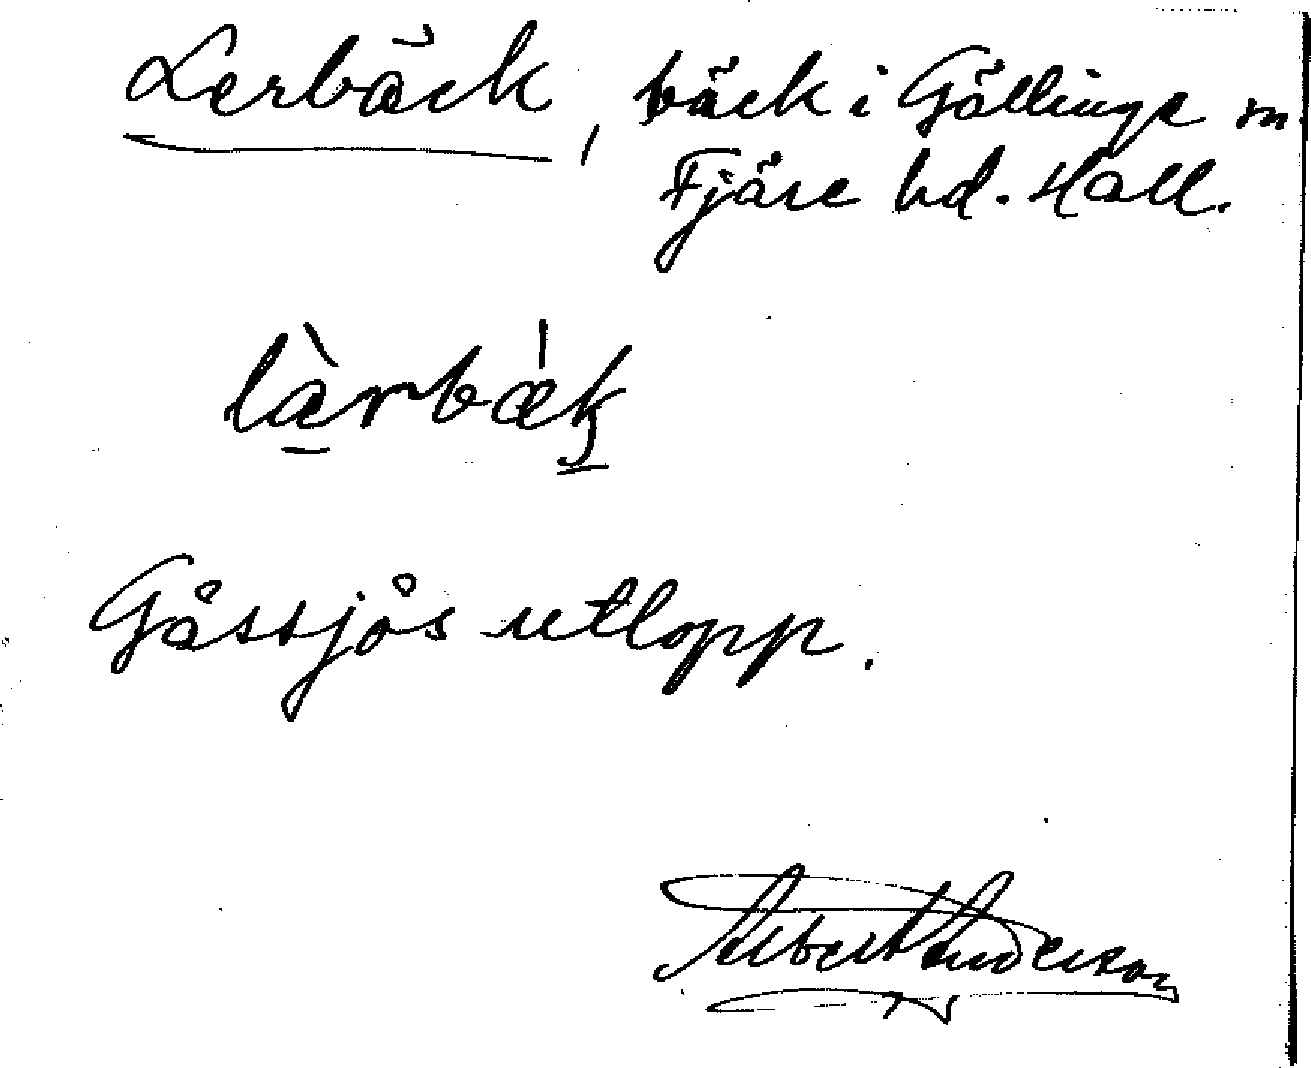 Lerbäck, bäck i Gällinge sn.
Fjäre hd. Hall.
lærbæk
Gåssjös utlopp.
Albert Anderson